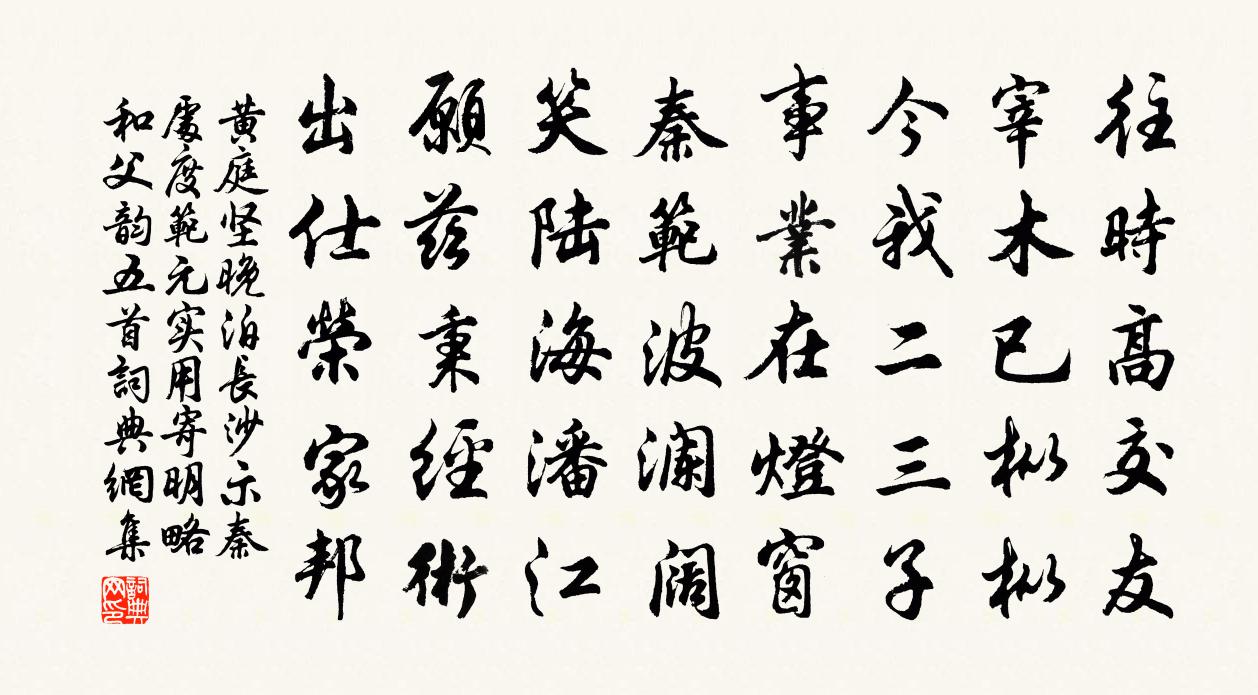 往時高交友
宰木已枞枞
今我二三子
事業在燈窗
秦範波澜阔
笑陆海潘江
願茲秉經術
出仕榮家邦
黄庭坚晚泊長沙示秦
處度範元实用寄明略
和父韵五首詞典網集
詞典网印